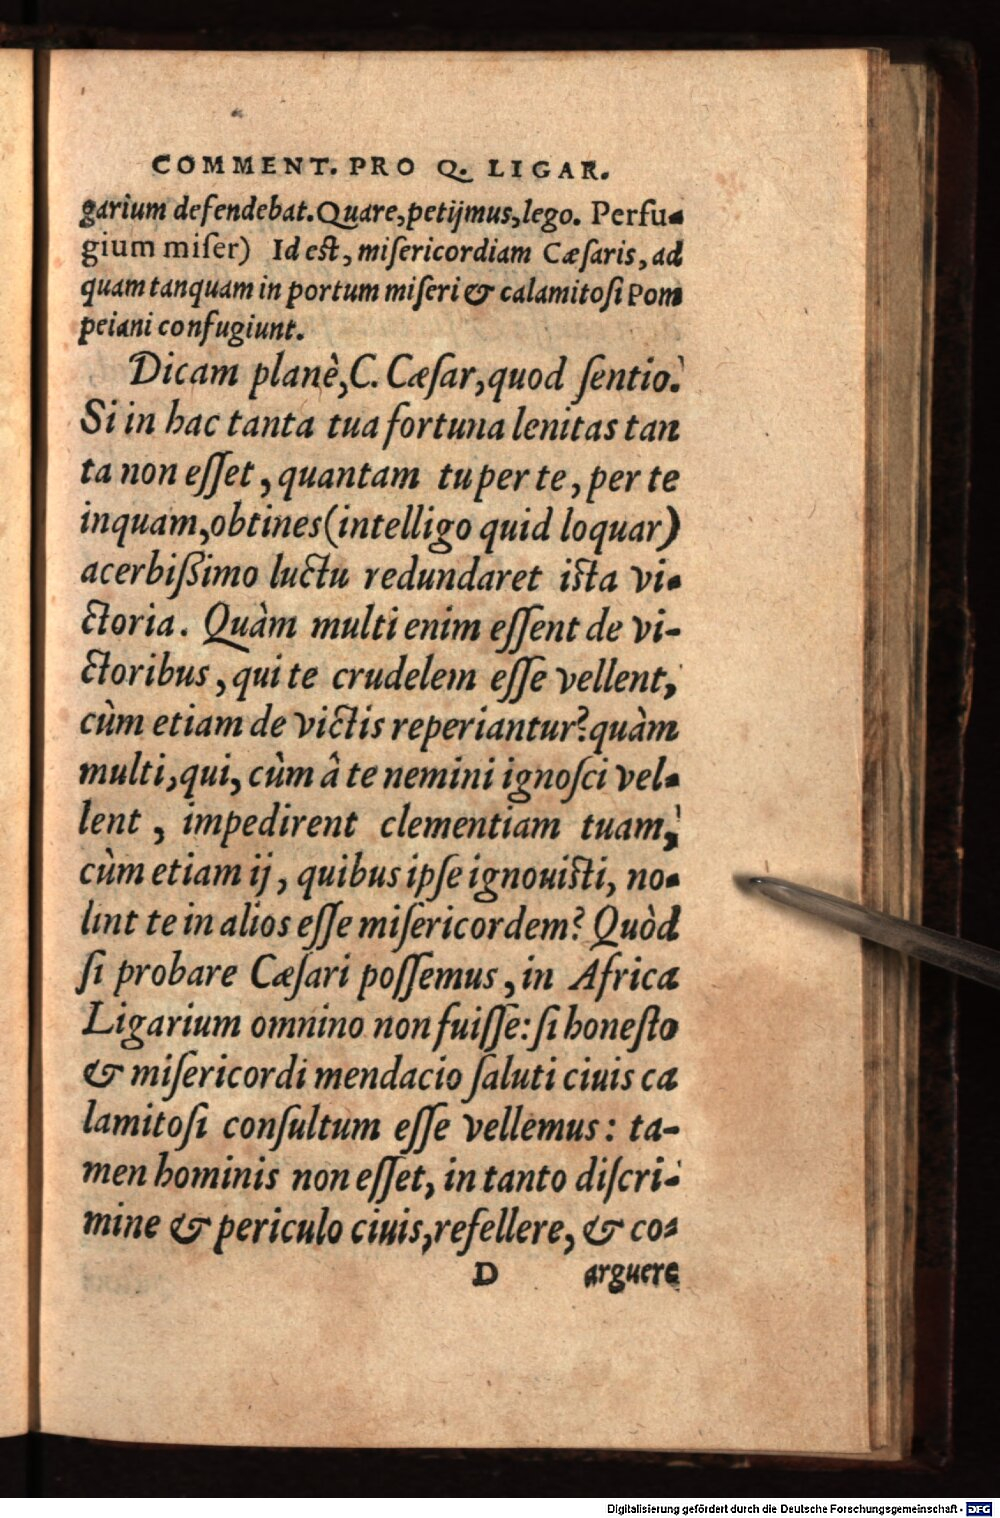 COMMENT. PRO Q. LIGAR.
garium defendebat. Quare, petijmus, lego. Perfu-
gium miſer) Id est, miſericordiam Cæſaris, ad
quam tanquam in portum miſeri & calamitoſi Pom
peiani confugiunt.
Dicam planè, C. Cæſar, quod ſentio.
Si in hac tanta tua fortuna lenitas tan
ta non eſſet, quantam tu per te, per te
inquam, obtines (intelligo quid loquar)
acerbißimo luctu redundaret ista vi-
ctoria. Quàm multi enim eſſent de vi-
ctoribus, qui te crudelem eſſe vellent,
cùm etiam de victis reperiantur? quàm
multi, qui, cùm â te nemini ignoſci vel-
lent, impedirent clementiam tuam,
cùm etiam ij, quibus ipſe ignouisti, no-
lint te in alios eſſe miſericordem? Quòd
ſi probare Cæſari poſſemus, in Africa
Ligarium omnino non fuiſſe: ſi honeſto
& miſericordi mendacio ſaluti ciuis ca
lamitoſi conſultum eſſe vellemus: ta-
men hominis non eſſet, in tanto diſcri-
mine & periculo ciuis, refellere, & co-
D arguere
Digitalisierung gefördert durch die Deutsche Forschungsgemeinschaft - DFG